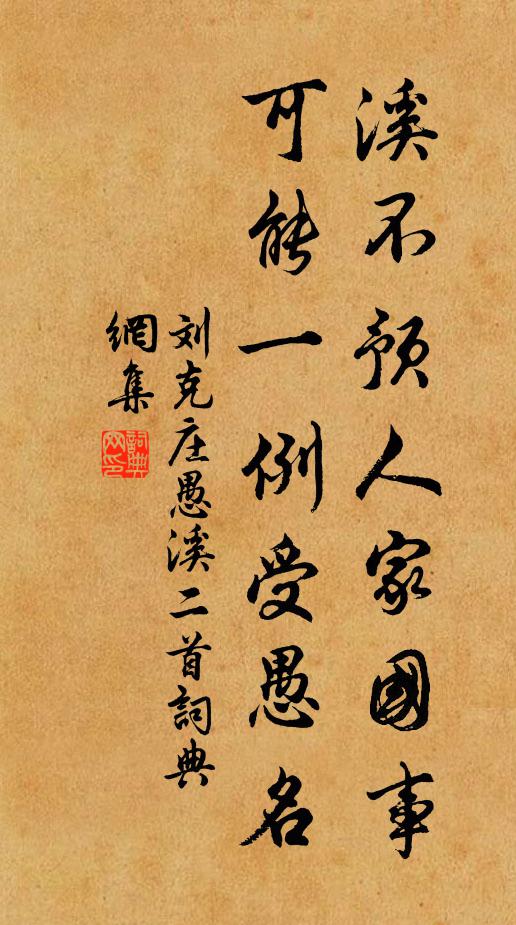 溪不預人家國事
可能一例受愚名
刘克庄愚溪二首詞典
網集
詞典
网印